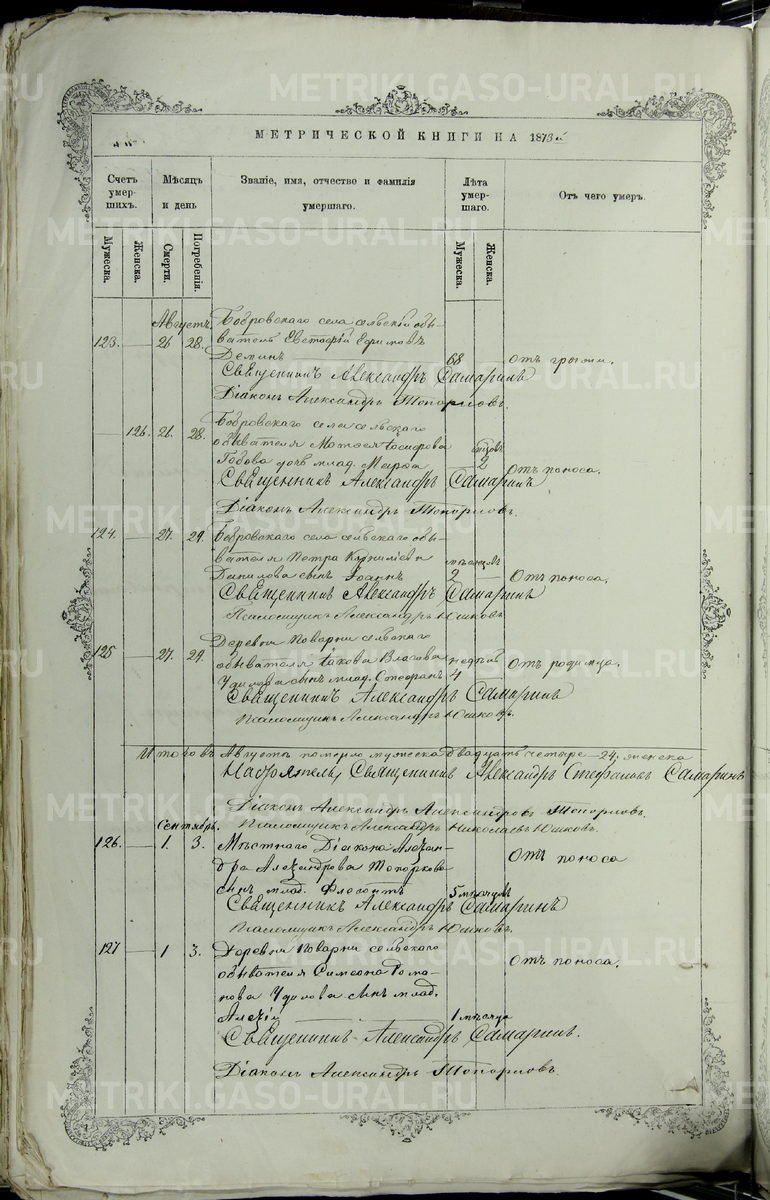 МЕТРИЧЕСКОЙ КНИГИ НА 1873й
Счетъ умер-шихъ.
Мѣсяцъ и день
Званіе, имя, отчество и фамилія умершаго.
Лѣта умер-шаго.
Отъ чего умеръ.
Мужеска.
Женска.
Смерти.
Погребенія.
Мужеска.
Женска.
Августъ.
Бобровскаго села сельскій обы-
123. 26 28. вателъ Евстафій Ефимовъ
Деминъ 68 отъ грыжи.
Священникъ Александръ Самаринъ
Діаконъ Александръ Топорковъ.
Бобровскаго села сельскаго
126. 26. 28. обывателя Матѳея Іосифова
дочь млад. Марѳа 2 отъ поноса.
Священникъ Александръ Самаринъ
Діаконъ Александръ Топорковъ.
124. 27. 29. Бобровскаго села сельскаго обы-
вателя Петра мѣсяцевъ
Данилова сынъ Іоаннъ 2 Отъ поноса.
Священникъ Александръ Самаринъ
Псаломщикъ Александръ Юшковъ
Деревни Поварни сельскаго
125 27. 29. обывателя Іакова Власова недѣль отъ родимца.
сынъ млад. Стефанъ 4
Священникъ Александръ Самаринъ
Псаломщикъ Александръ Юшковъ.
Итого въ Августѣ померло мужеска двадцать четыре — 24, женска
Настоятель, Священникъ Александръ Стефановъ Самаринъ
Діаконъ Александръ Александровъ Топорковъ.
Сентябрь. Псаломщикъ Александръ Николаевъ Юшковъ.
126. 1. 3. Мѣстнаго Діакона Алексан-
дра Александрова Топоркова Отъ поноса
сынъ млад. Флегонтъ 5 мѣсяцевъ
Священникъ Александръ Самаринъ
Псаломщикъ Александръ Юшковъ.
127 1 3. Деревни Поварни сельскаго
обывателя Симеона Рома- Отъ поноса.
нова Удилова сынъ млад.
Алексій 1 мѣсяца
Священникъ Александръ Самаринъ.
Діаконъ Александръ Топорковъ.
METRIKI.GASO-URAL.RU